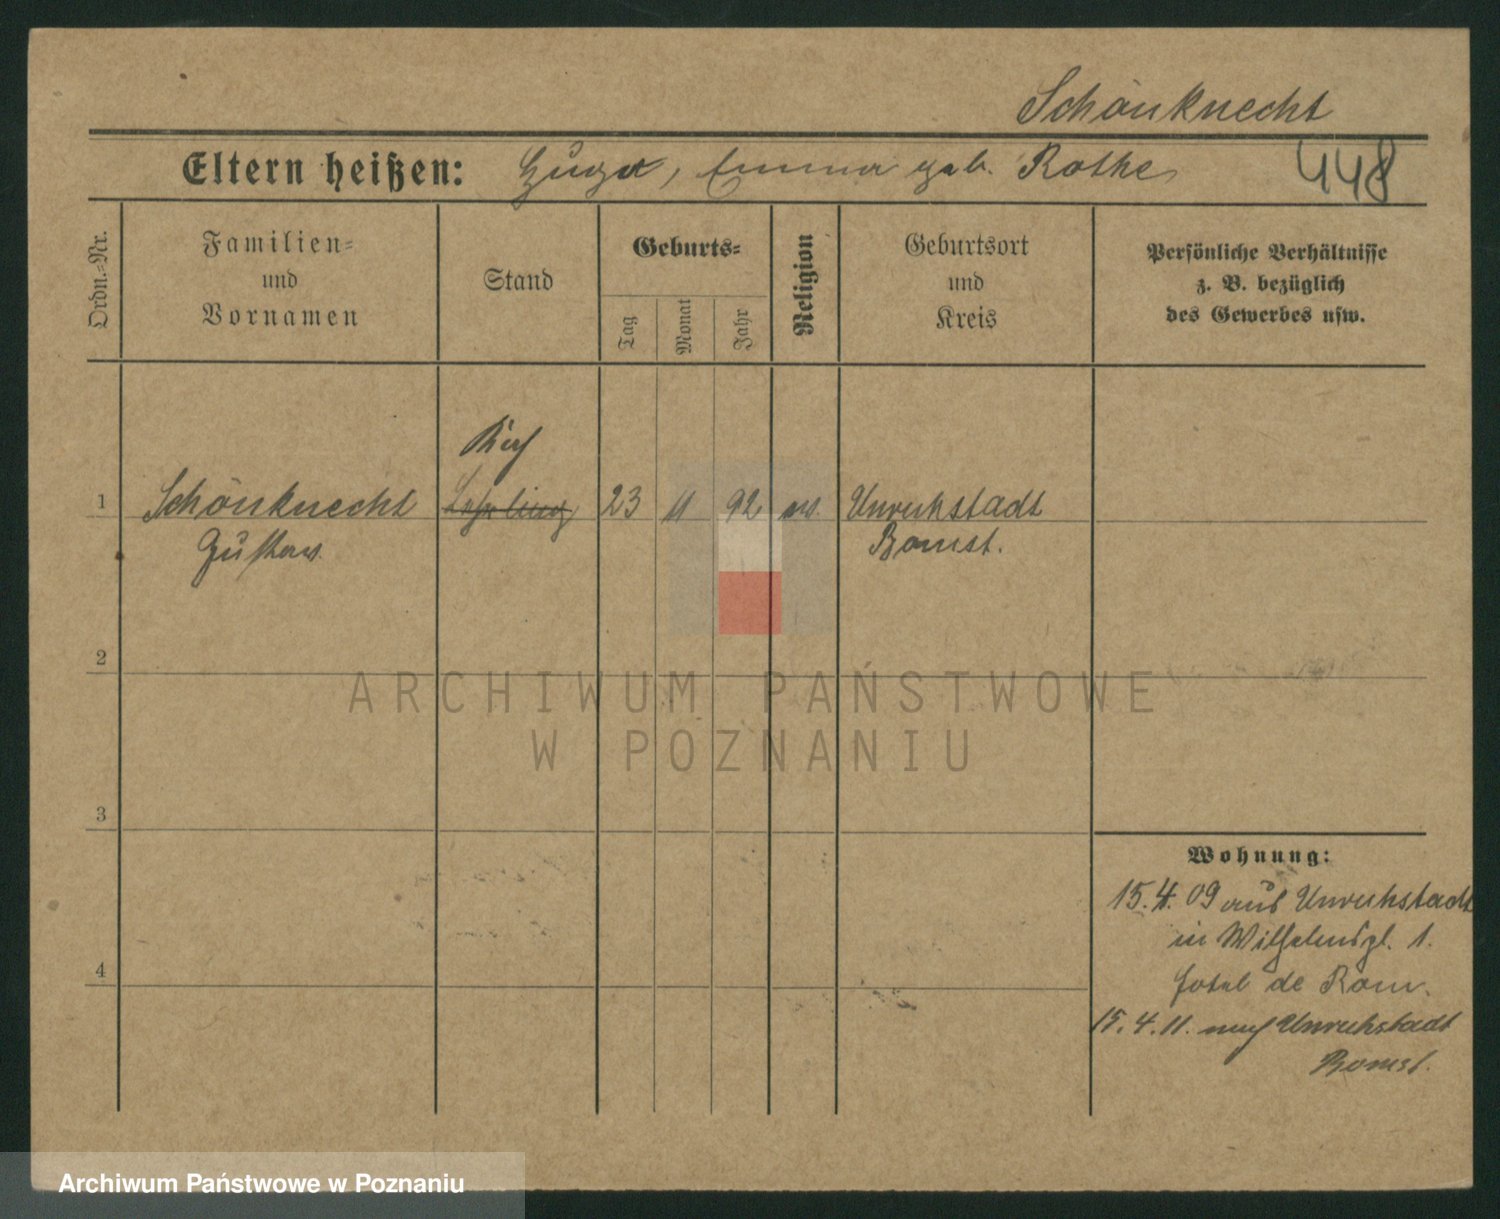 Schönknecht
Eltern heißen: Hugo, Emma geb. Rothe
448
Ordn.-Nr.
Familien-
und
Vornamen
Stand
Geburts-
Tag
Monat
Jahr
Religion
Geburtsort
und
Kreis
Persönliche Verhältnisse
z. B. bezüglich
des Gewerbes usw.
Koch
1 Schönknecht Lehrling 23 11 92 ev. Unruhstadt
Gustav Bomst.
2
3
4
Wohnung:
15.4.09 aus Unruhstadt
in Wilhelmspl. 1.
Hotel de Rom.
15.4.11. nach Unruhstadt
Bomst.
ARCHIWUM PAŃSTWOWE
W POZNANIU
Archiwum Państwowe w Poznaniu